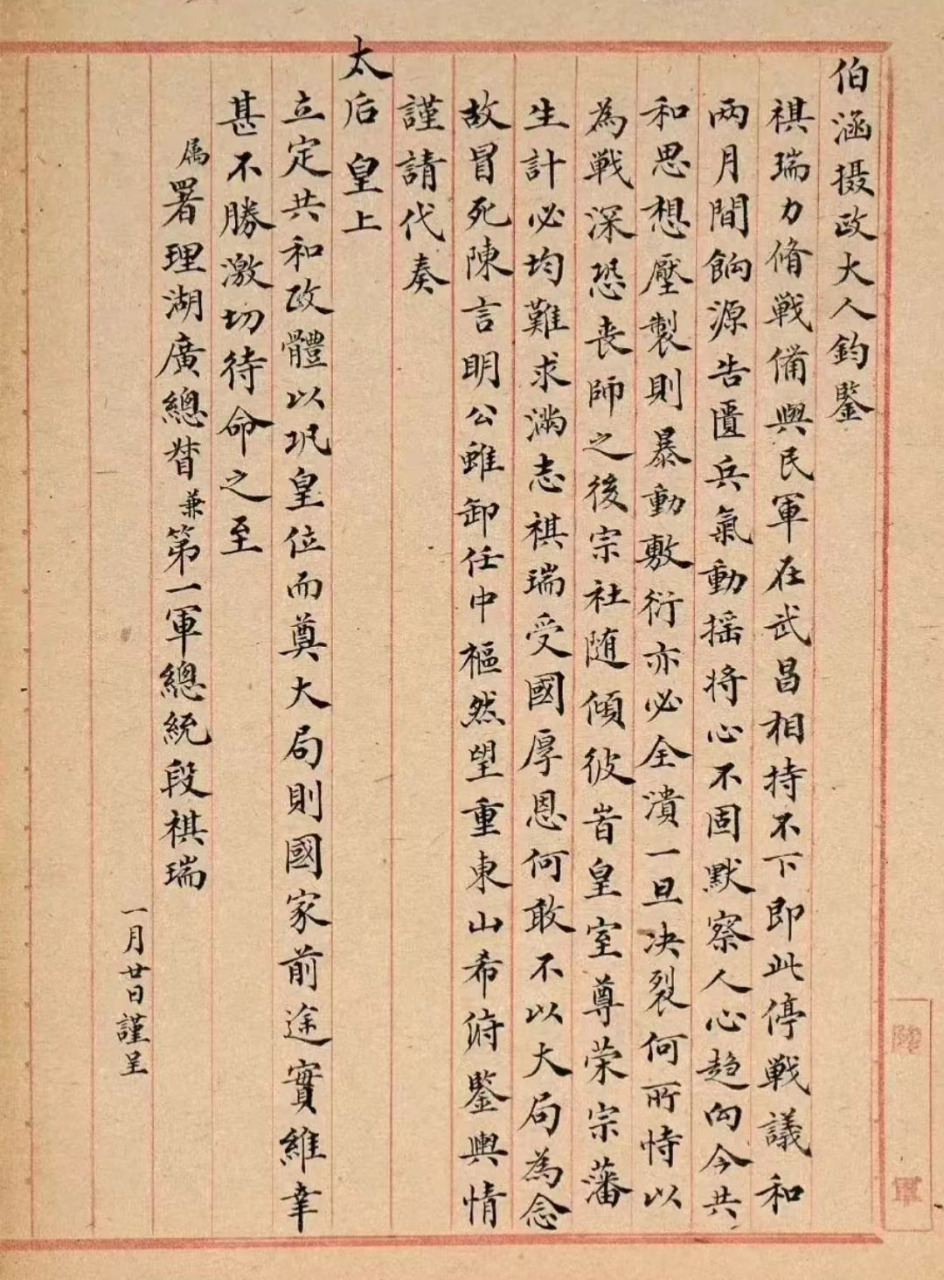 伯涵摄政大人鈞鑒
祺瑞力脩戦備與民軍在武昌相持不下即此停戦議和
两月間餉源告匱兵氣動揺将心不固默察人心趋向今共
和思想壓製則暴動敷衍亦必全潰一旦决裂何所恃以
為戦深恐丧師之後宗社随傾彼旹皇室尊荣宗藩
生計必均難求滿志祺瑞受國厚恩何敢不以大局為念
故冒死陳言明公雖卸任中樞然望重東山希俯鑒輿情
謹請代奏
太后 皇上
立定共和政體以巩皇位而奠大局則國家前途實維幸
甚不勝激切待命之至
属署理湖廣總督兼第一軍總統段祺瑞
一月廿日謹呈
陸 軍